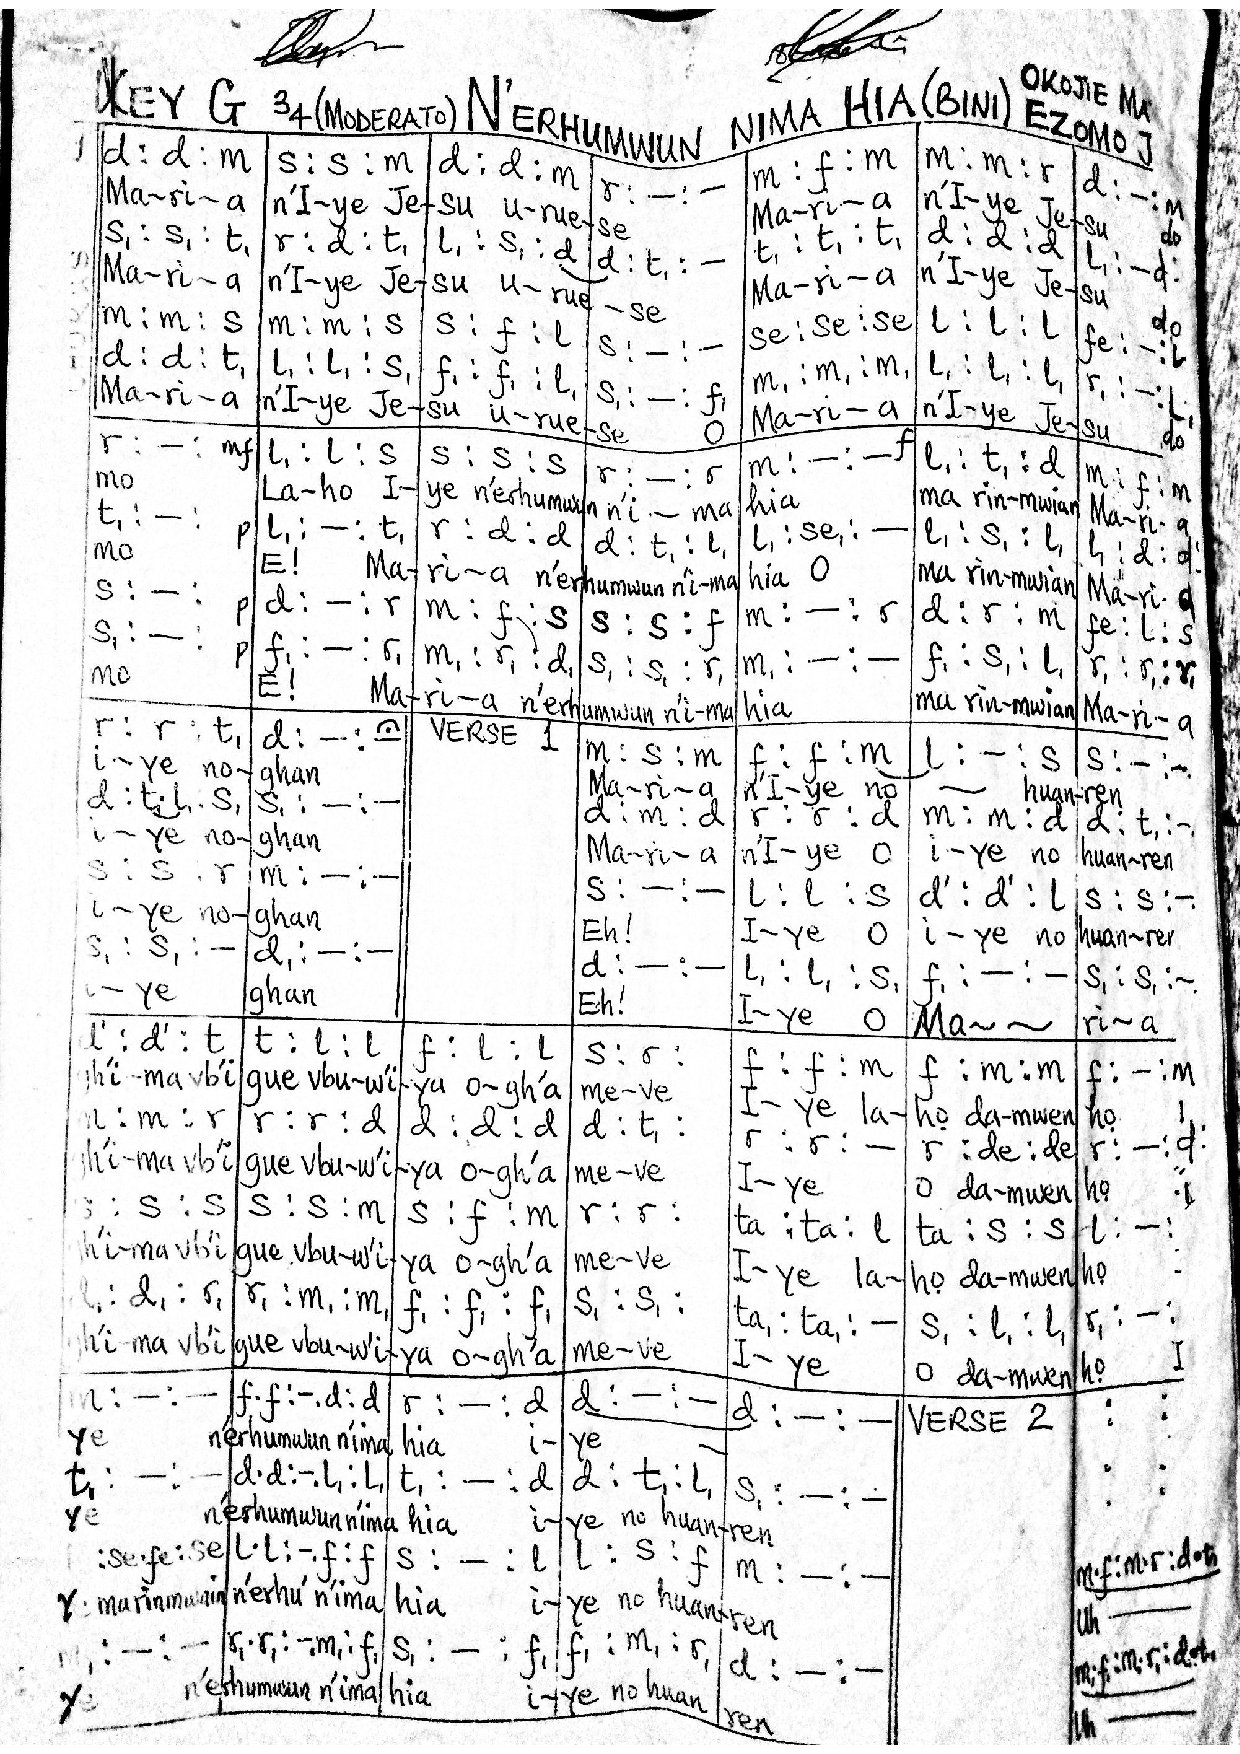 KEY G 3/4 (MODERATO) N'ERHUMWUN NIMA HIA (BINI) OKOJIE MA
EZOMO J
d : d : m | s : s : m | d : d : m | r : — : — | m : f : m | m : m : r | d : — : m
Ma-ri-a n'I-ye Je-su u-rue-se Ma-ri-a n'I-ye Je-su do
s, : s, : t, | r : d : t, | l, : s, : d | d : t, : — | t, : t, : t, | d : d : d | l, : — d :
Ma-ri-a n'I-ye Je-su u-rue-se Ma-ri-a n'I-ye Je-su do
m : m : s | m : m : s | s : f : l | s : — : — | se : se : se | l : l : l | fe : — : l
d : d : t, | l, : l, : s, | f, : f, : l, | s, : — : f, | m, : m, : m, | l, : l, : l, | r, : — : l,
Ma-ri-a n'I-ye Je-su u-rue-se O Ma-ri-a n'I-ye Je-su do
r : — : mf | l, : l : s | s : s : s | r : — : r | m : — : — f | l, : t, : d | m : f : m
mo La-ho I-ye n'erhumwun n'i-ma hia ma rin-mwian Ma-ri-a
t, : — : p | l, : — : t, | r : d : d | d : t, : l, | l, : se, : — | l, : s, : l, | l, : d : d :
mo E! Ma-ri-a n'erhumwun n'i-ma hia O ma rin-mwian Ma-ri-a
s : — : p | d : — : r | m : f : s | s : s : f | m : — : r | d : r : m | fe : l : s
s, : — : p | f, : — : r, | m, : r, : d, | s, : s, : r, | m, : — : — | f, : s, : l, | r, : r, : r,
mo E! Ma-ri-a n'erhumwun n'i-ma hia ma rin-mwian Ma-ri-a
r : r : t, | d : — : 𝄐 | VERSE 1 | m : s : m | f : f : m | l : — : s | s : — : —
i-ye no-ghan Ma-ri-a n'I-ye no ~ huan-ren
d : t, . l, . s, | s, : — : — | d : m : d | r : r : d | m : m : d | d : t, : —
i-ye no-ghan Ma-ri-a n'I-ye O i-ye no huan-ren
s : s : r | m : — : — | s : — : — | l : l : s | d' : d' : l | s : s : —
i-ye no-ghan Eh! I-ye O i-ye no huan-ren
s, : s, : — | d, : — : — | d : — : — | l, : l, : s, | f, : — : — | s, : s, : —
i-ye ghan Eh! I-ye O Ma~~ ri-a
d' : d' : t | t : l : l | f : l : l | s : r : | f : f : m | f : m : m | f : — : m
gh'i-ma vb'i gue vbu-w'i-ya o-gh'a me-ve I-ye la-họ da-mwen họ I
m : m : r | r : r : d | d : d : d | d : t, : | r : r : — | r : de : de | r : — : d :
gh'i-ma vb'i gue vbu-w'i-ya o-gh'a me-ve I-ye O da-mwen họ i
s : s : s | s : s : m | s : f : m | r : r : | ta : ta : l | ta : s : s | l : — :
gh'i-ma vb'i gue vbu-w'i-ya o-gh'a me-ve I-ye la-họ da-mwen họ -
d, : r, | r, : m, : m, | f, : f, : f, | s, : s, : | ta, : ta, : — | s, : l, : l, | r, : — :
gh'i-ma vb'i gue vbu-w'i-ya o-gh'a me-ve I-ye O da-mwen họ I
m : — : — | f . f : — . d : d | r : — : d | d : — : — | d : — : — | VERSE 2 | : :
ye n'erhumwun n'ima hia i-ye ~
t, : — : — | d . d : — . l, : l, | t, : — : d | d : t, : l, | s, : — : —
ye n'erhumwun n'ima hia i-ye no huan-ren
: se . fe : se | l . l : — . f : f | s : — : l | l : s : f | m : — : — | m . f : m . r : d . t,
Y: marinmwain n'erhu' n'ima hia i-ye no huan-ren Uh —
m, : — : — | r, . r, : — . m, : f, | s, : — : f, | f, : m, : r, | d : — : — | m, . f, : m, . r, : d, . t,
ye n'erhumwun n'ima hia i-ye no huan ren Uh —